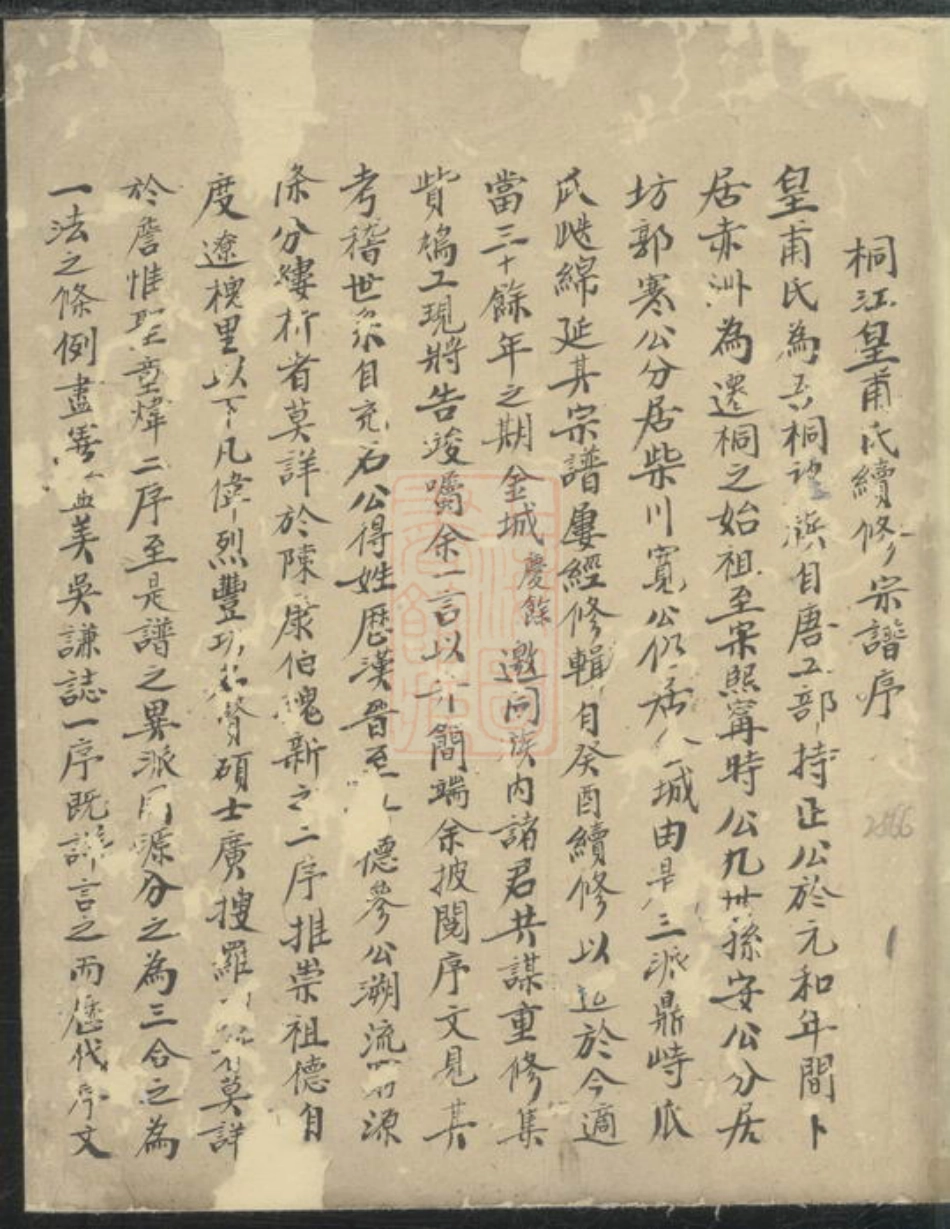 桐江皇甫氏續修宗譜序
皇甫氏為吾桐望族自唐工部持正公於元和年間卜
居赤洲為遷桐之始祖至宋熙寧時公九世孫安公分居
坊郭寒公分居柴川寬公仍居城由是三派鼎峙瓜
瓞綿延其宗譜屢經修輯自癸酉續修以迄於今適
當三十餘年之期金城慶餘邀同族內諸君共謀重修集
貲鳩工現將告竣囑余一言以弁簡端余披閱序文見其
考稽世系自充石公得姓歷漢晉至德參公溯流源
條分縷析者莫詳於陳康伯魏新之二序推崇祖德自
度遼槐里以下凡偉烈豐功碩士廣搜羅莫詳
於詹惟聖童煒二序至是譜之異派同源分之為三合之為
一法之條例盡善盡美吳謙誌一序既詳言之而歷代序文
2866
1